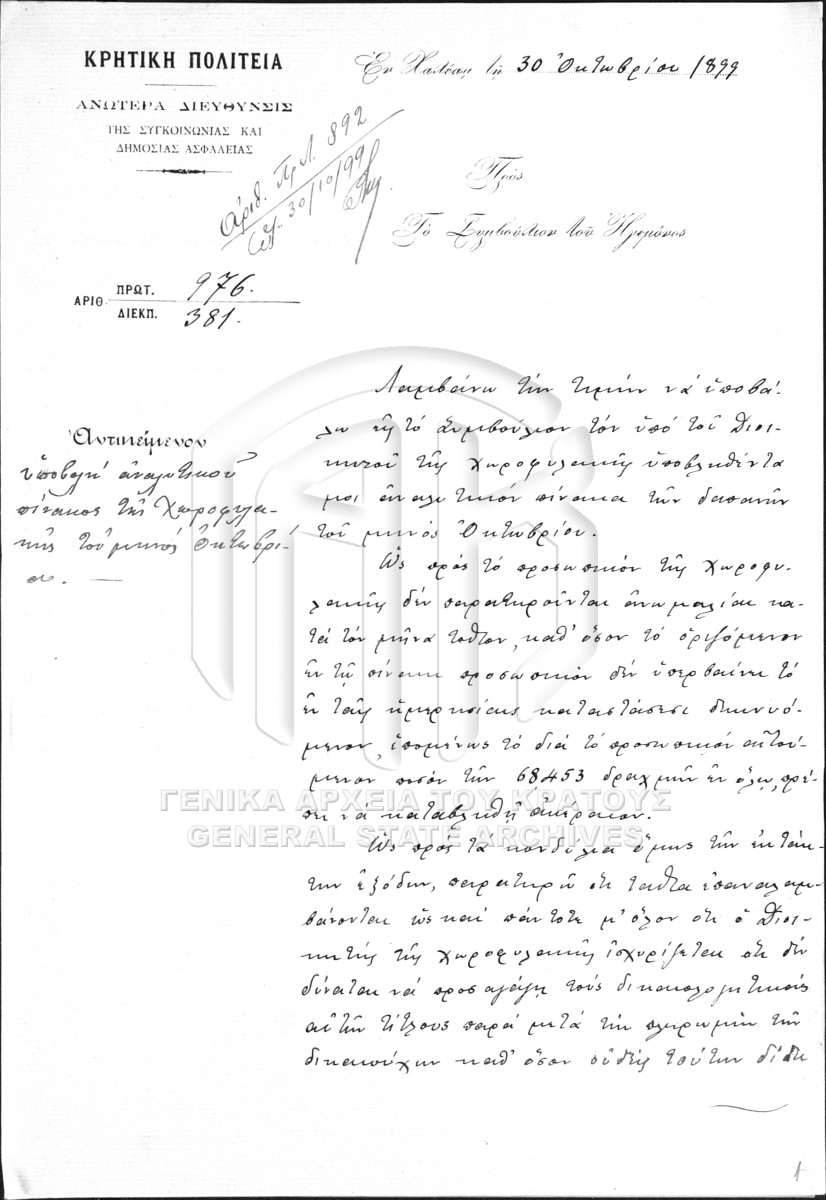 ΚΡΗΤΙΚΗ ΠΟΛΙΤΕΙΑ
ΑΝΩΤΕΡΑ ΔΙΕΥΘΥΝΣΙΣ
ΤΗΣ ΣΥΓΚΟΙΝΩΝΙΑΣ ΚΑΙ
ΔΗΜΟΣΙΑΣ ΑΣΦΑΛΕΙΑΣ
Ἐν Χαλέπᾳ τῇ 30 Ὀκτωβρίου 1899
Ἀριθ. Πρ. 892
30/10/99
Πρὸς
Τὸ Συμβούλιον τοῦ Ἡγεμόνος
ΑΡΙΘ. ΠΡΩΤ. 976.
ΔΙΕΚΠ. 381.
Ἀντικείμενον
ὑποβολὴ ἀναλυτικοῦ
πίνακος τῆς Χωροφυλα-
κῆς τοῦ μηνὸς Ὀκτωβρί-
ου. —
Λαμβάνω τὴν τιμὴν νὰ ὑποβά-
λω εἰς τὸ Συμβούλιον τὸν ὑπὸ τοῦ Διοι-
κητοῦ τῆς χωροφυλακῆς ὑποβληθέντα
μοι ἀναλυτικὸν πίνακα τῶν δαπανῶν
τοῦ μηνὸς Ὀκτωβρίου.
Ὡς πρὸς τὸ προσωπικὸν τῆς χωροφυ-
λακῆς δὲν παρατηροῦνται ἀνωμαλίαι κα-
τὰ τὸν μῆνα τοῦτον, καθ' ὅσον τὸ ὁριζόμενον
ἐν τῷ πίνακι προσωπικὸν δὲν ὑπερβαίνει τὸ
ἐν ταῖς ἡμερησίαις καταστάσεσι δεικνυό-
μενον, ἑπομένως τὸ διὰ τὸ προσωπικὸν αἰτού-
μενον ποσὸν τῶν 68453 δραχμῶν ἐν ὅλῳ, πρέ-
πει νὰ καταβληθῇ ἀκέραιον.
Ὡς πρὸς τὰ κονδύλια ὅμως τῶν ἐκτάκ-
των ἐξόδων, παρατηρῶ ὅτι ταῦτα ἐπαναλαμ-
βάνονται ὡς καὶ πάντοτε μ' ὅλον ὅτι ὁ Διοι-
κητὴς τῆς χωροφυλακῆς ἰσχυρίζεται ὅτι δὲν
δύναται νὰ προσαγάγῃ τοὺς δικαιολογητικοὺς
αὐτῶν τίτλους παρὰ μετὰ τὴν πληρωμὴν τῶν
δικαιούχων καθ' ὅσον οὐδεὶς τούτων δίδει
ΓΕΝΙΚΑ ΑΡΧΕΙΑ ΤΟΥ ΚΡΑΤΟΥΣ
GENERAL STATE ARCHIVES
1